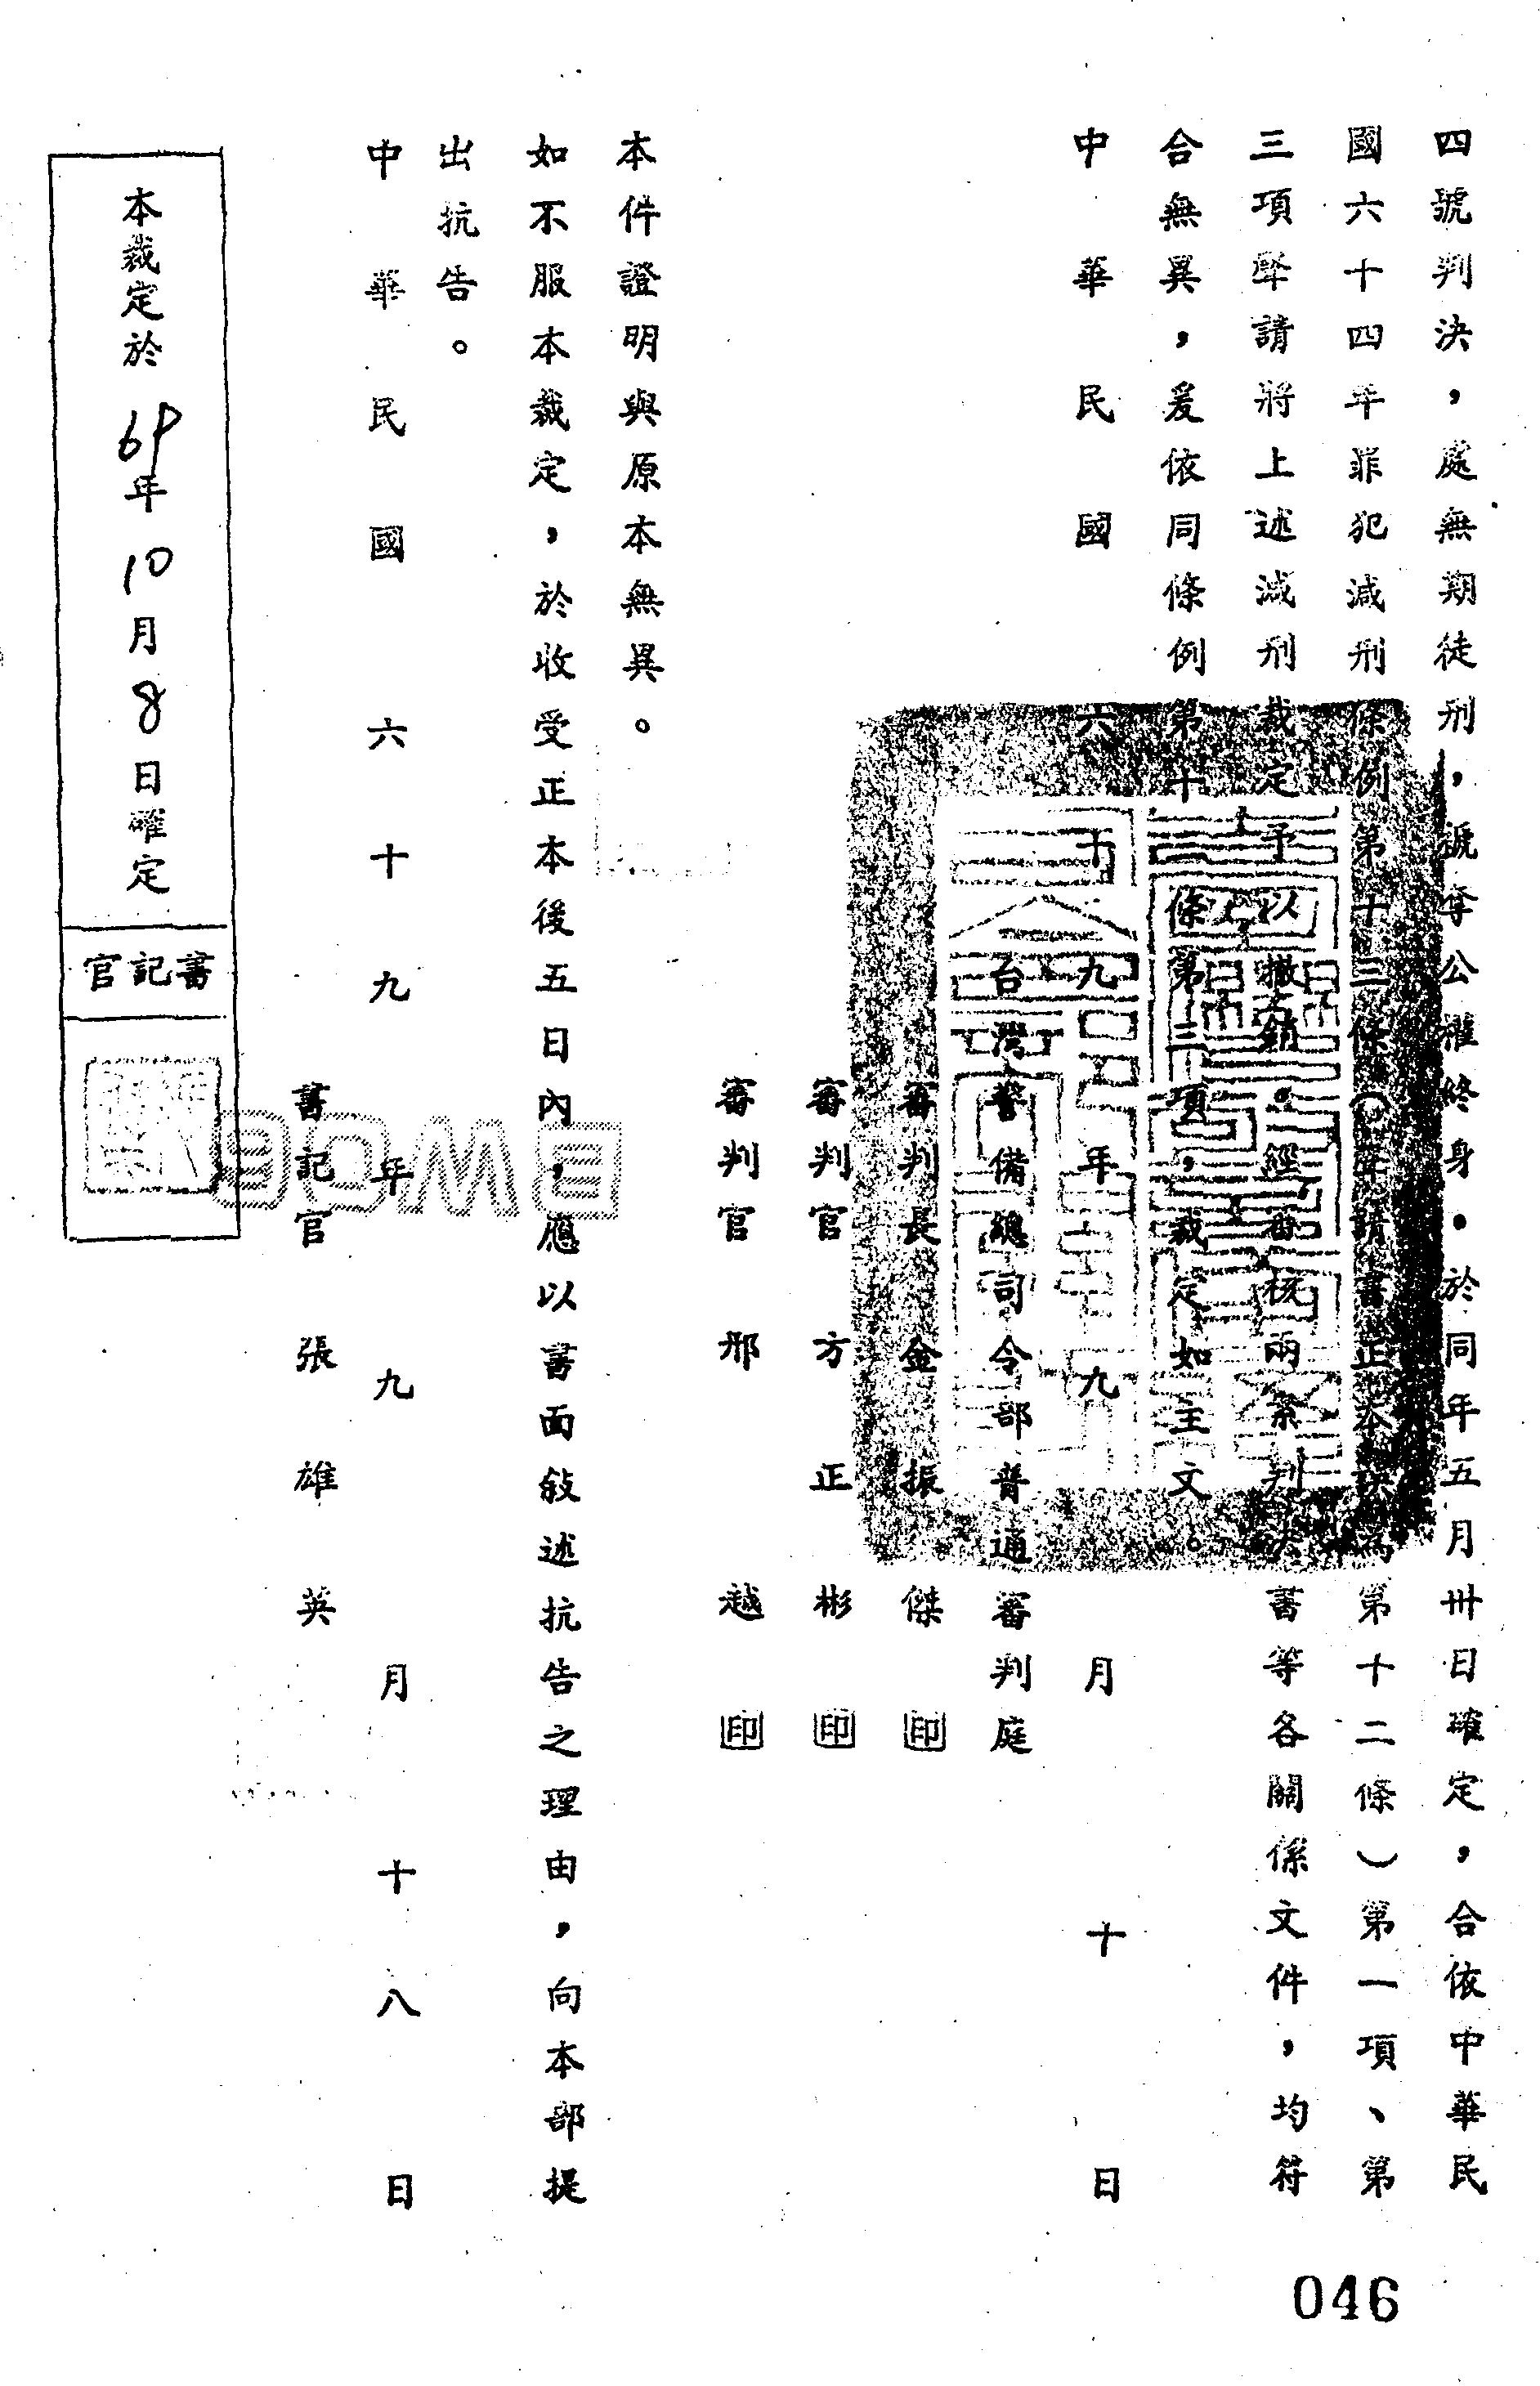 四號判決，處無期徒刑，褫奪公權終身。於同年五月卅日確定，合依中華民
國六十四年罪犯減刑條例第十三條（聲請書正本誤為第十二條）第一項、第
三項聲請將上述減刑裁定予以撤銷。經審核兩案判決書等各關係文件，均符
合無異，爰依同條例第十三條第三項，裁定如主文。
中華民國六十九年九月十日
台灣警備總司令部普通審判庭
審判長金振傑印
審判官方正彬印
審判官邢越印
本件證明與原本無異。
如不服本裁定，於收受正本後五日內，應以書面敍述抗告之理由，向本部提
出抗告。
中華民國六十九年九月十八日
書記官張雄英
本裁定於69年10月8日確定
書記官
046